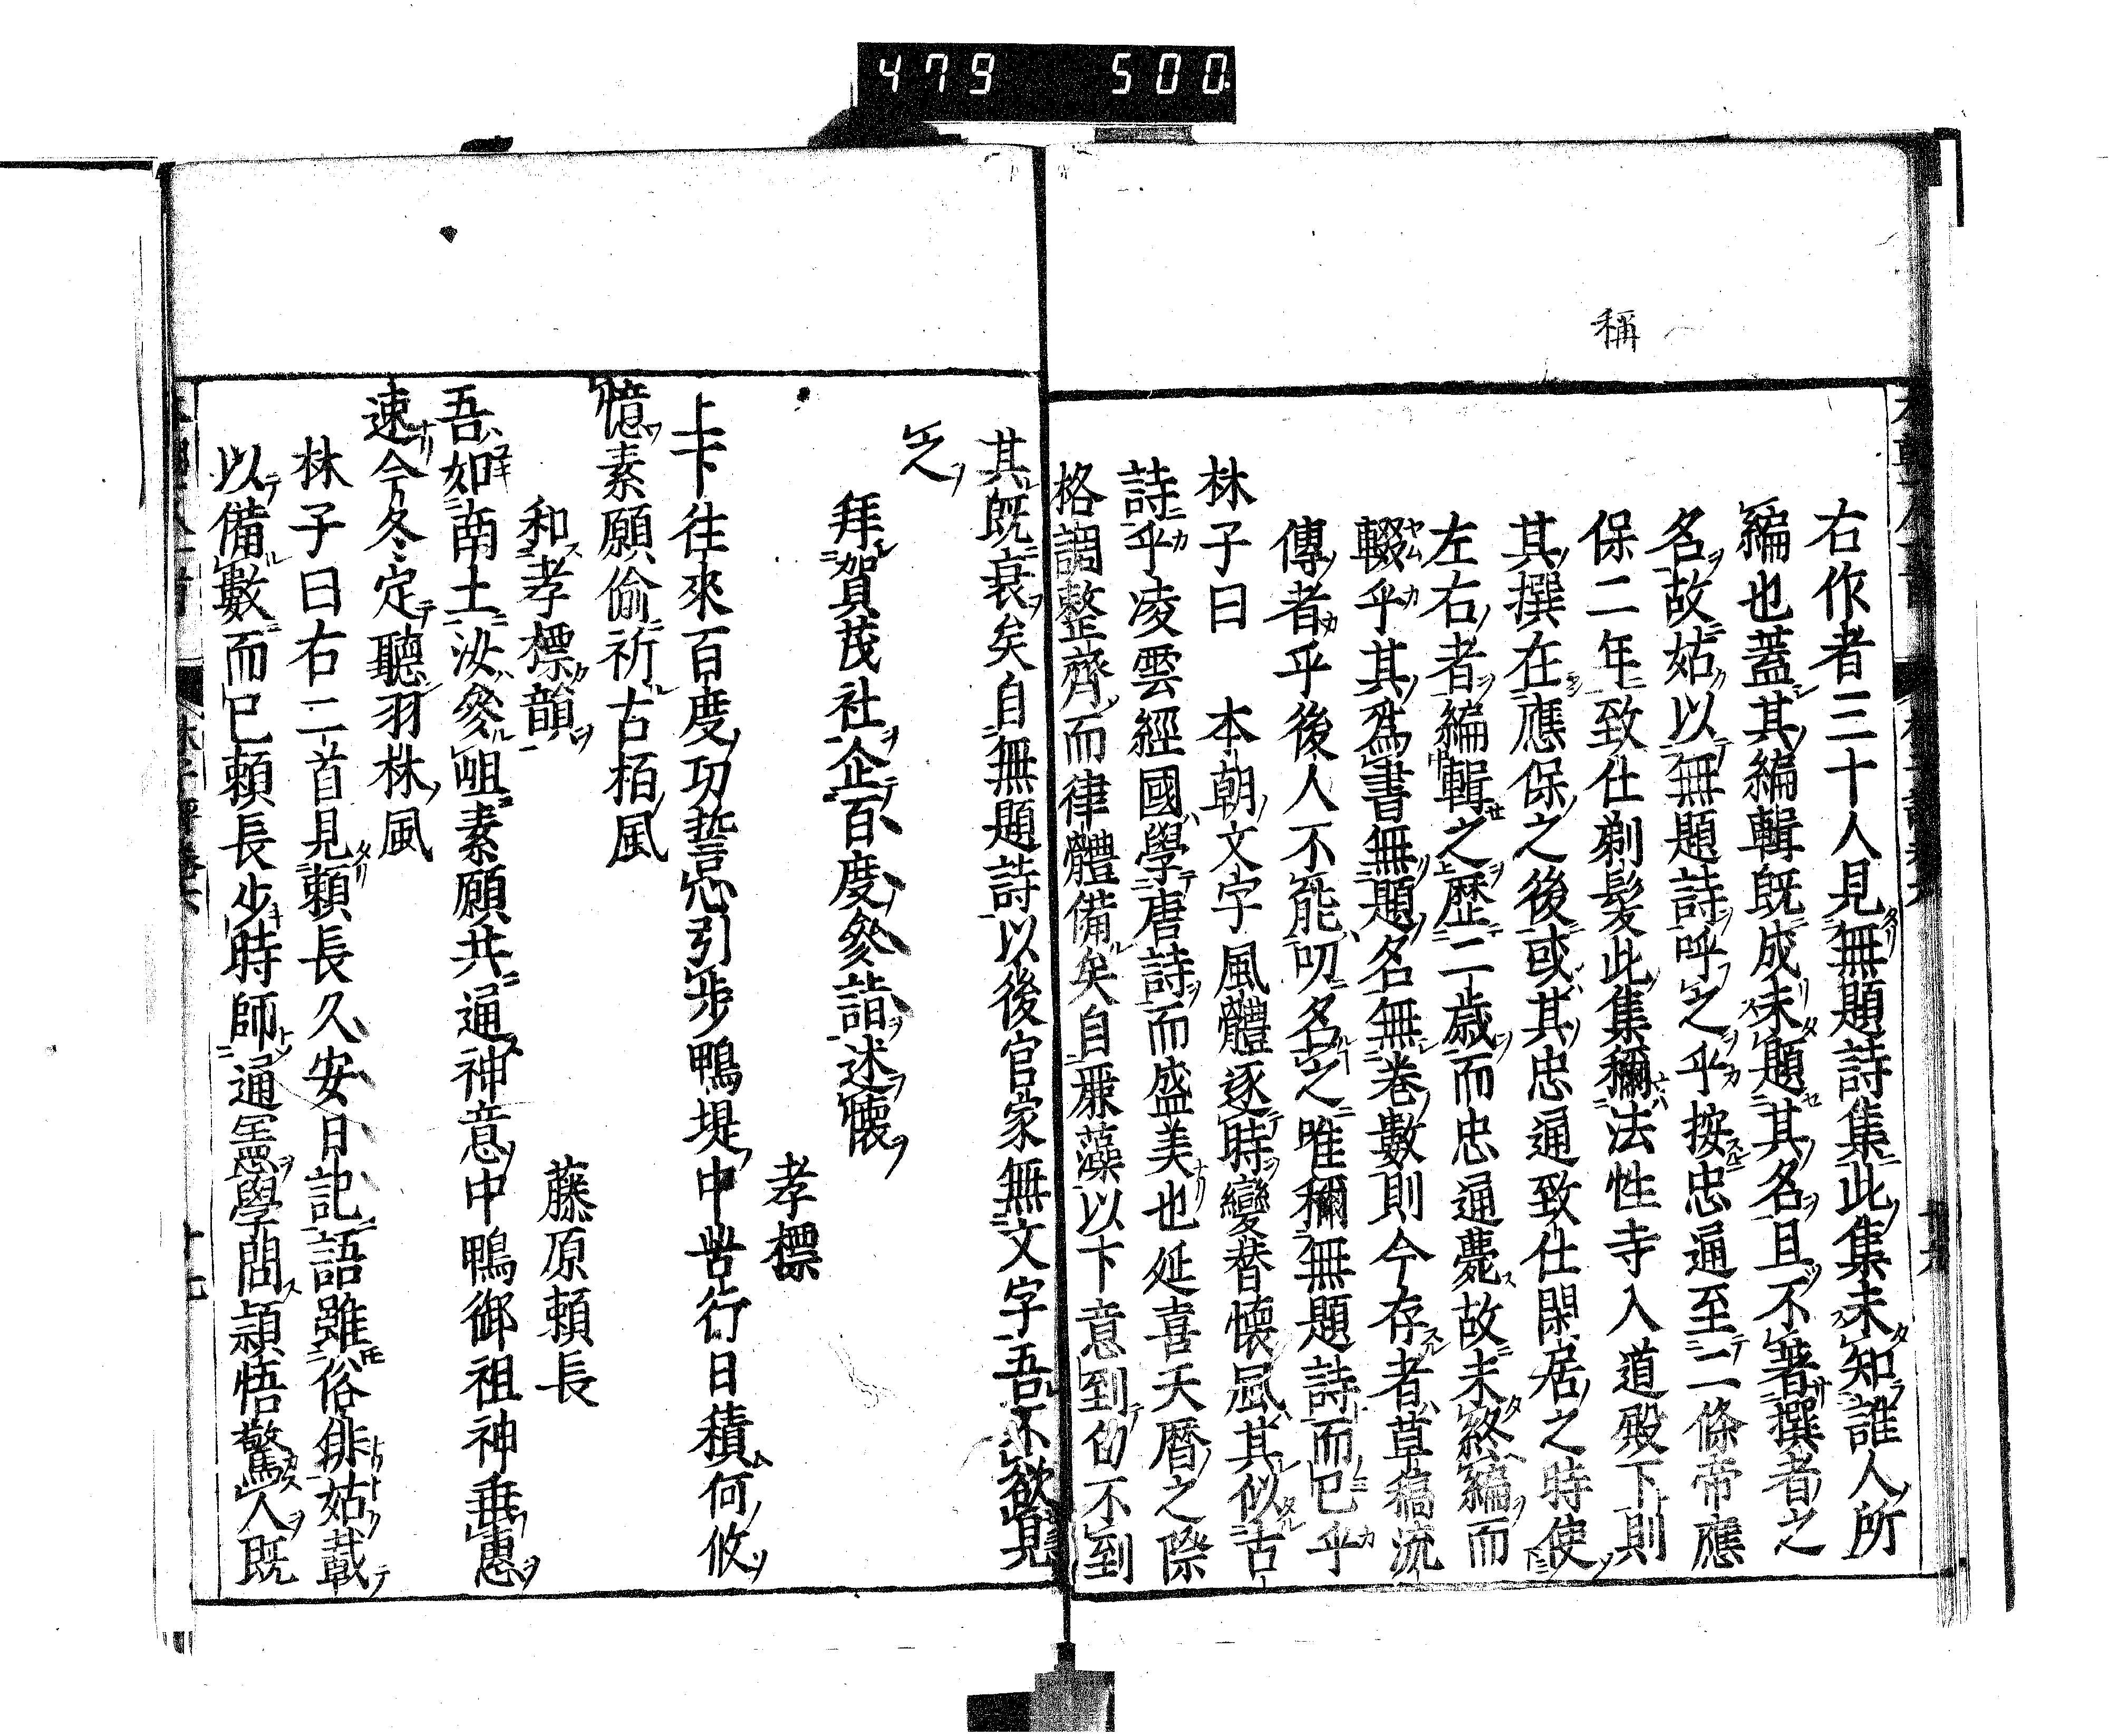 479 500
稱
右作者三十人見無題詩集此集未知誰人所
編也蓋其編輯既成未題其名且不著撰者之
名故姑以無題詩呼之乎按忠通至二條帝應
保二年致仕剃髮此集稱法性寺入道殿下則
其撰在應保之後或其忠通致仕閑居之時使
左右者編輯之歷二歲而忠通薨故未終編而
輟乎其爲書無題名無卷數則今存者草稿流
傳者乎後人不能叨名之唯稱無題詩而已乎
林子曰 本朝文字風體逐時變替懷風其似古
詩乎凌雲經國學唐詩而盛美也延喜天曆之際
格調整齊而律體備矣自麗藻以下意到句不到
其既衰矣自無題詩以後官家無文字吾不欲見
之
拜賀茂社企百度參詣述懷
孝標
上下往來百度功誓心引步鴨堤中苦行日積何攸
憶素願偷祈古柏風
和孝標韻
藤原賴長
吾如南土汝參咀素願共通神意中鴨御祖神垂惠
速今冬定聽羽林風
林子曰右二首見賴長久安日記語雖俗俳姑載
以備數而已賴長少時師通憲學問頴悟驚人既